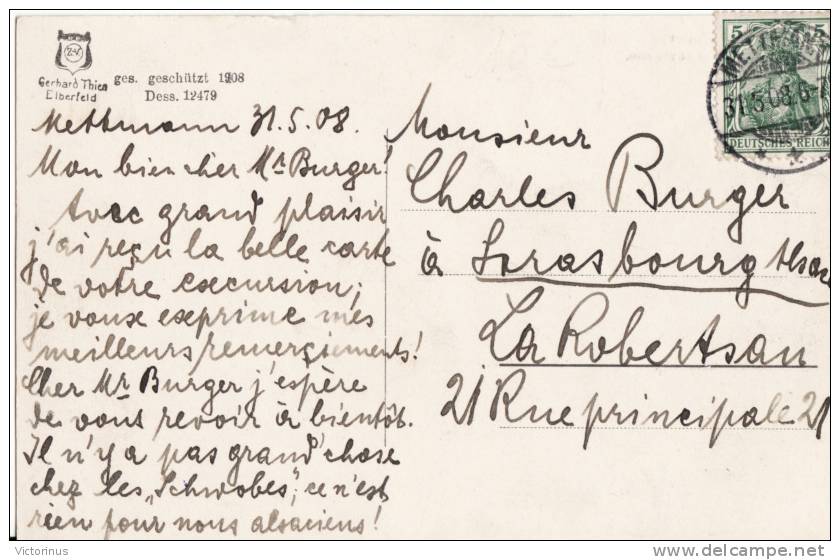 Z&V
Gerhard Thien
Elberfeld
ges. geschützt 1908
Dess. 12479
Mettmann 31.5.08.
Mon bien cher Mr Burger!
Avec grand plaisir
j'ai reçu la belle carte
de votre excursion;
je vous exprime mes
meilleurs remerciements!
Cher Mr Burger j'espère
de vous revoir à bientôt.
Il n'y a pas grand'chose
chez les „Schwobes", ce n'est
rien pour nous alsaciens!
5 5
METTMANN
31.5.08.6-7
DEUTSCHES REICH
Monsieur
Charles Burger
à Strasbourg Alsace
La Robertsau
21 Rue principale 21
Victorinus
delcampe.net